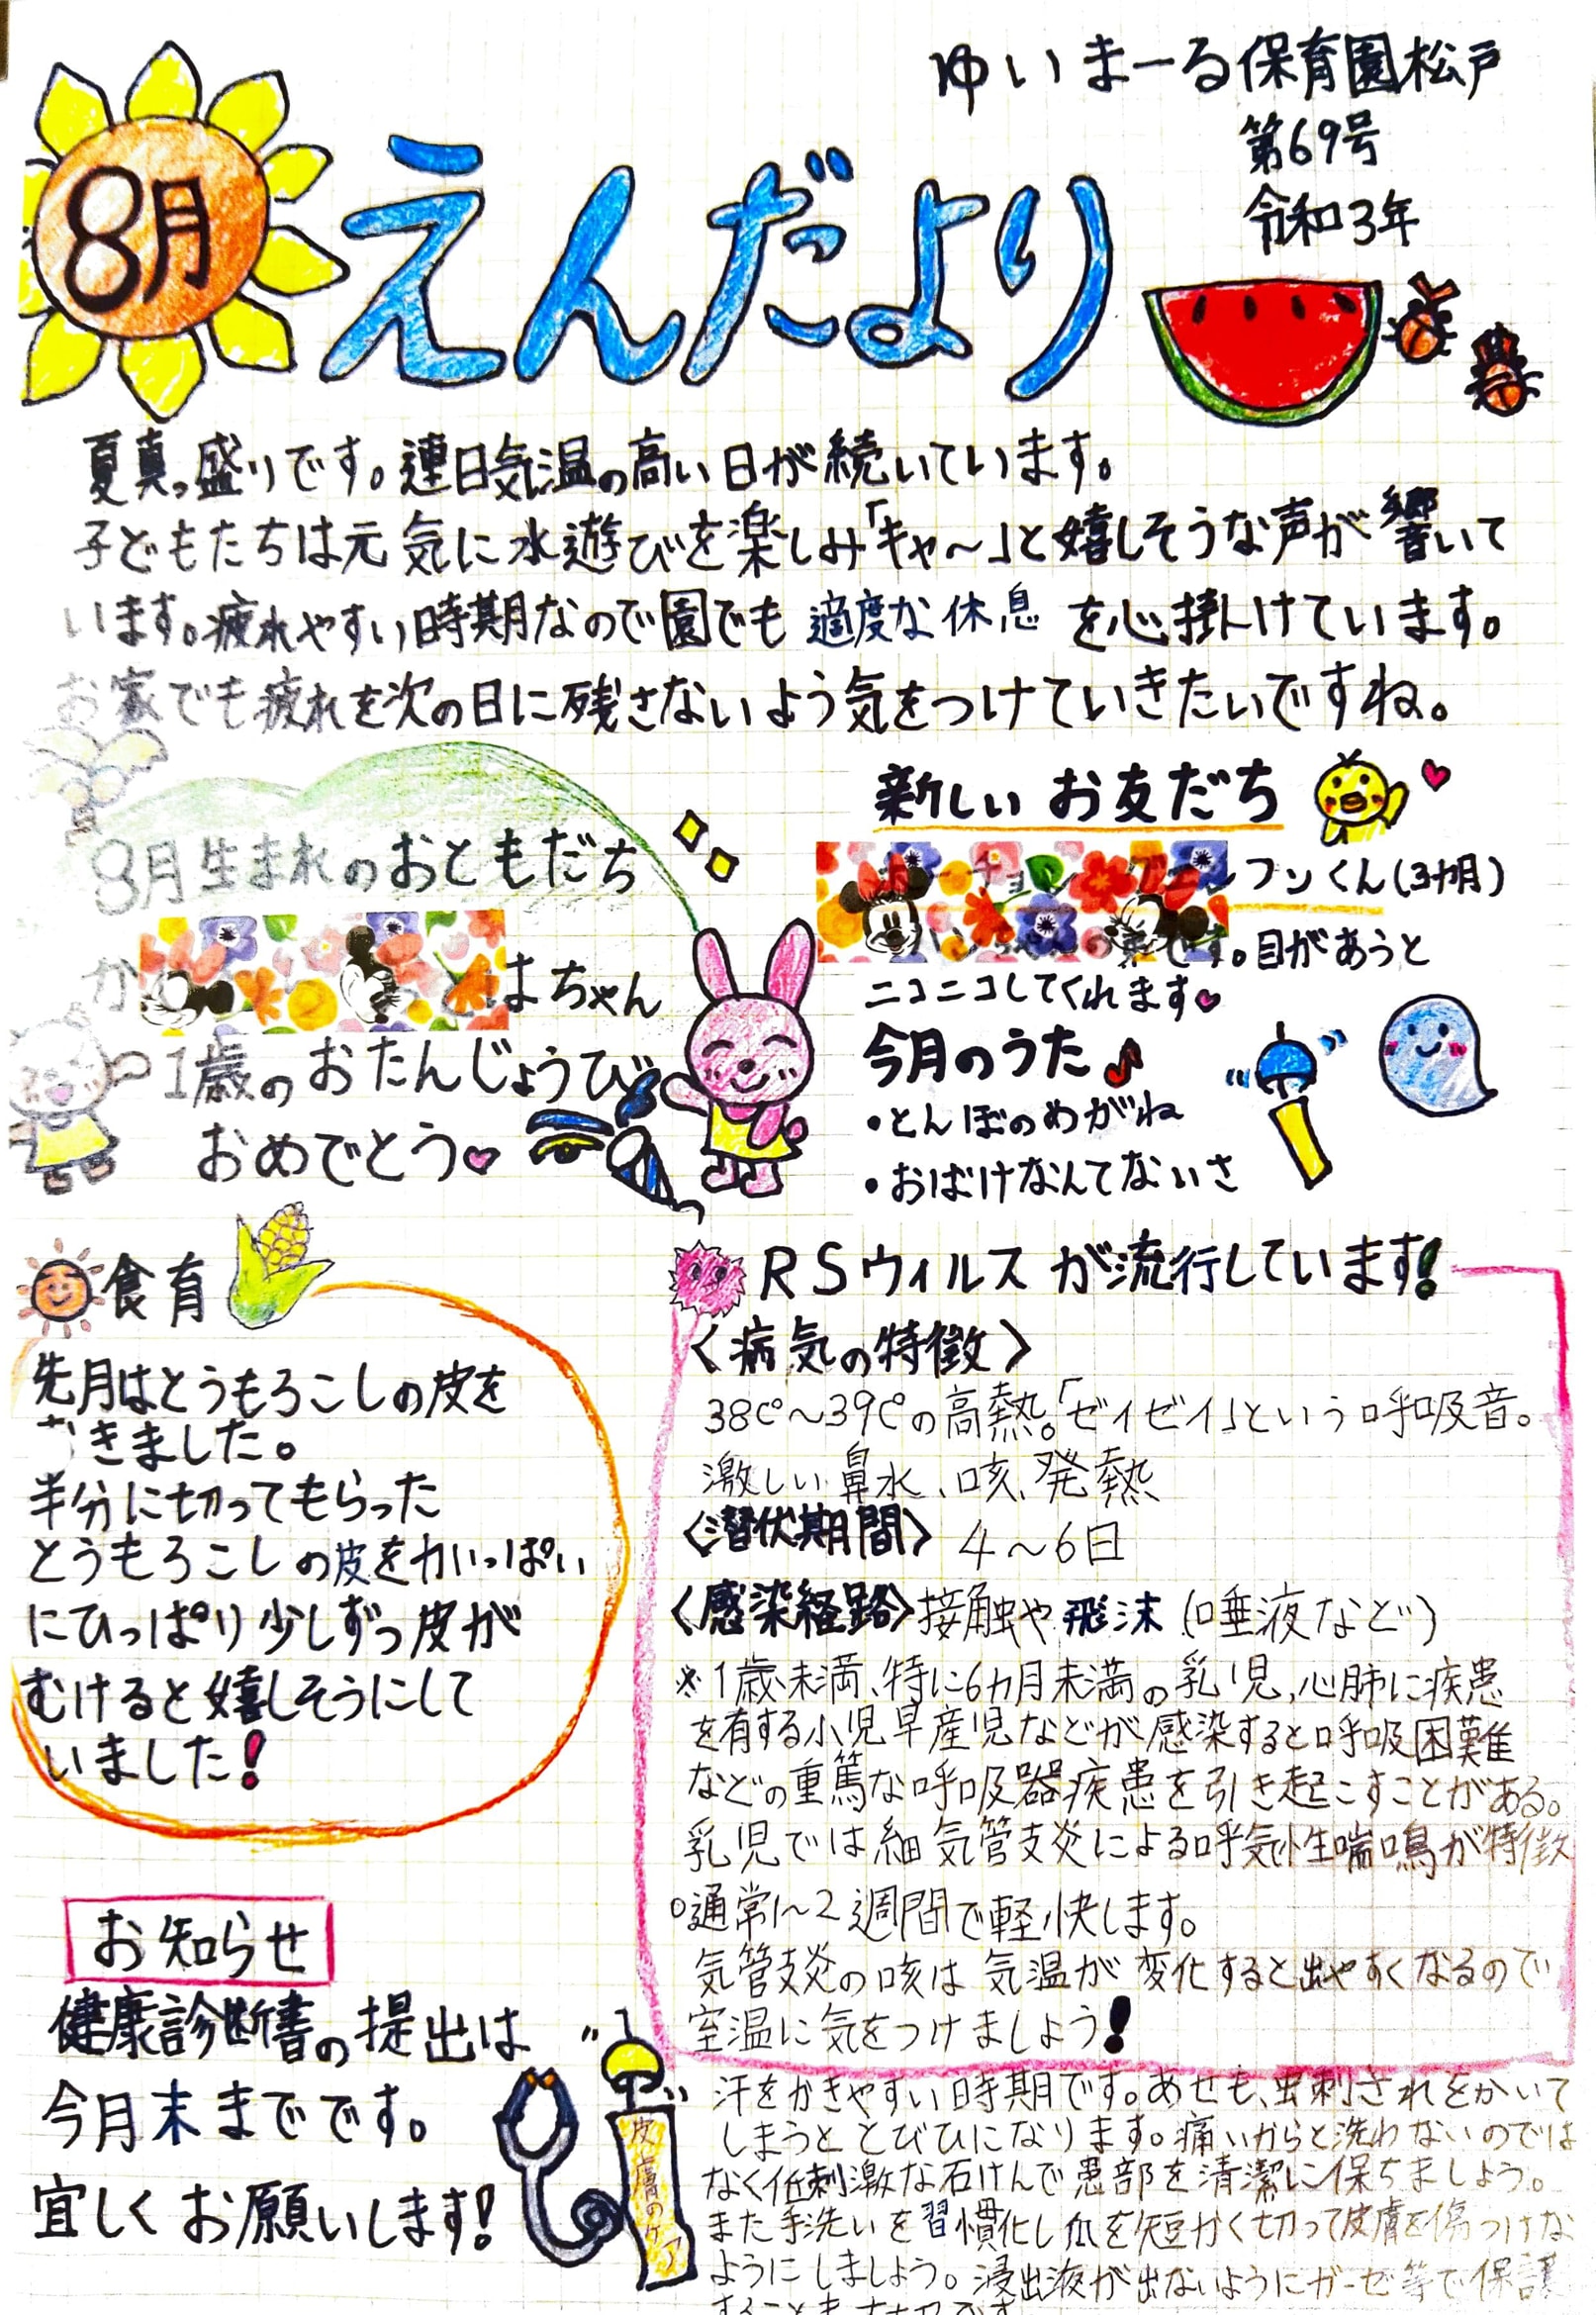 ゆいまーる保育園松戸
第69号
令和3年
8月
えんだより
夏真っ盛りです。連日気温の高い日が続いています。
子どもたちは元気に水遊びを楽しみ「キャ〜」と嬉しそうな声が響いて
います。疲れやすい時期なので園でも適度な休息を心掛けています。
お家でも疲れを次の日に残さないよう気をつけていきたいですね。
8月生まれのおともだち
か はちゃん
1歳のおたんじょうび
おめでとう
新しいお友だち
フンくん(3カ月)
の弟です。目があうと
ニコニコしてくれます
今月のうた
・とんぼのめがね
・おばけなんてないさ
食育
先月はとうもろこしの皮を
きました。
半分に切ってもらった
とうもろこしの皮を力いっぱい
にひっぱり少しずつ皮が
むけると嬉しそうにして
いました!
RSウィルスが流行しています!
〈病気の特徴〉
38C°〜39C°の高熱。「ゼイゼイ」という呼吸音。
激しい鼻水、咳、発熱
〈潜伏期間〉 4〜6日
〈感染経路〉接触や飛沫(唾液など)
※1歳未満、特に6カ月未満の乳児、心肺に疾患
を有する小児早産児などが感染すると呼吸困難
などの重篤な呼吸器疾患を引き起こすことがある。
乳児では細気管支炎による呼気性喘鳴が特徴
○通常1〜2週間で軽快します。
気管支炎の咳は気温が変化すると出やすくなるので
室温に気をつけましょう!
お知らせ
健康診断書の提出は
今月末までです。
宜しくお願いします!
皮膚のケア
汗をかきやすい時期です。あせも、虫刺されをかいて
しまうととびひになります。痛いからと洗わないのでは
なく低刺激な石けんで患部を清潔に保ちましょう。
また手洗いを習慣化し爪を短かく切って皮膚を傷つけな
ようにしましょう。浸出液が出ないようにガーゼ等で保護